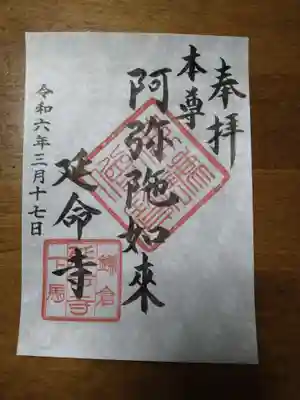 奉拝
本尊
阿弥陀如來
延命寺
令和六年三月十七日
鎌倉
延命寺
下馬